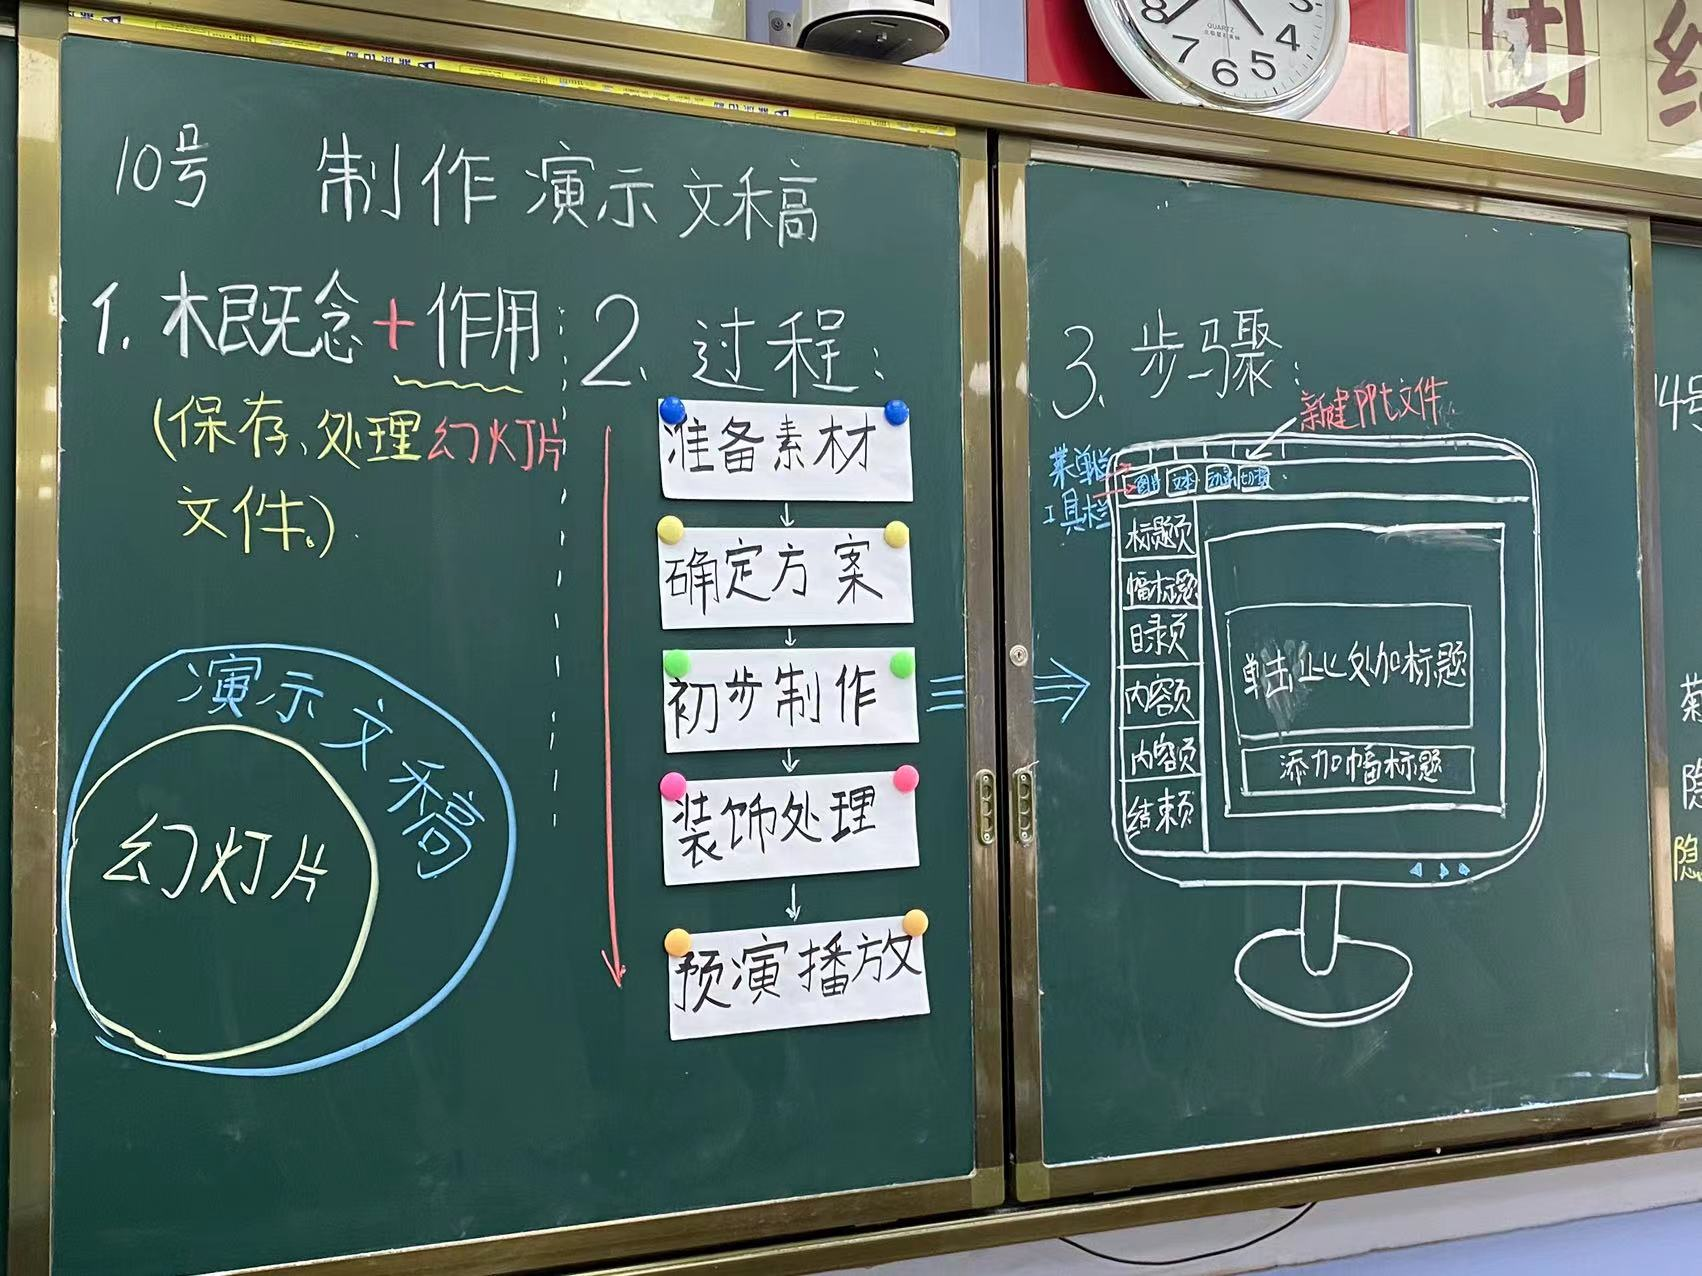 10号 制作演示文稿
1. 概念+作用
(保存、处理幻灯片
文件。)
演示文稿
幻灯片
2. 过程:
准备素材
确定方案
初步制作
装饰处理
预演播放
3. 步骤:
新建PPt文件
菜单栏
工具栏
图片 文本 动画 切换
标题页
幅标题
目录页
内容页
内容页
结束页
单击此处加标题
添加幅标题
8 7 6 5 4 3
QUARTZ
团结
14号